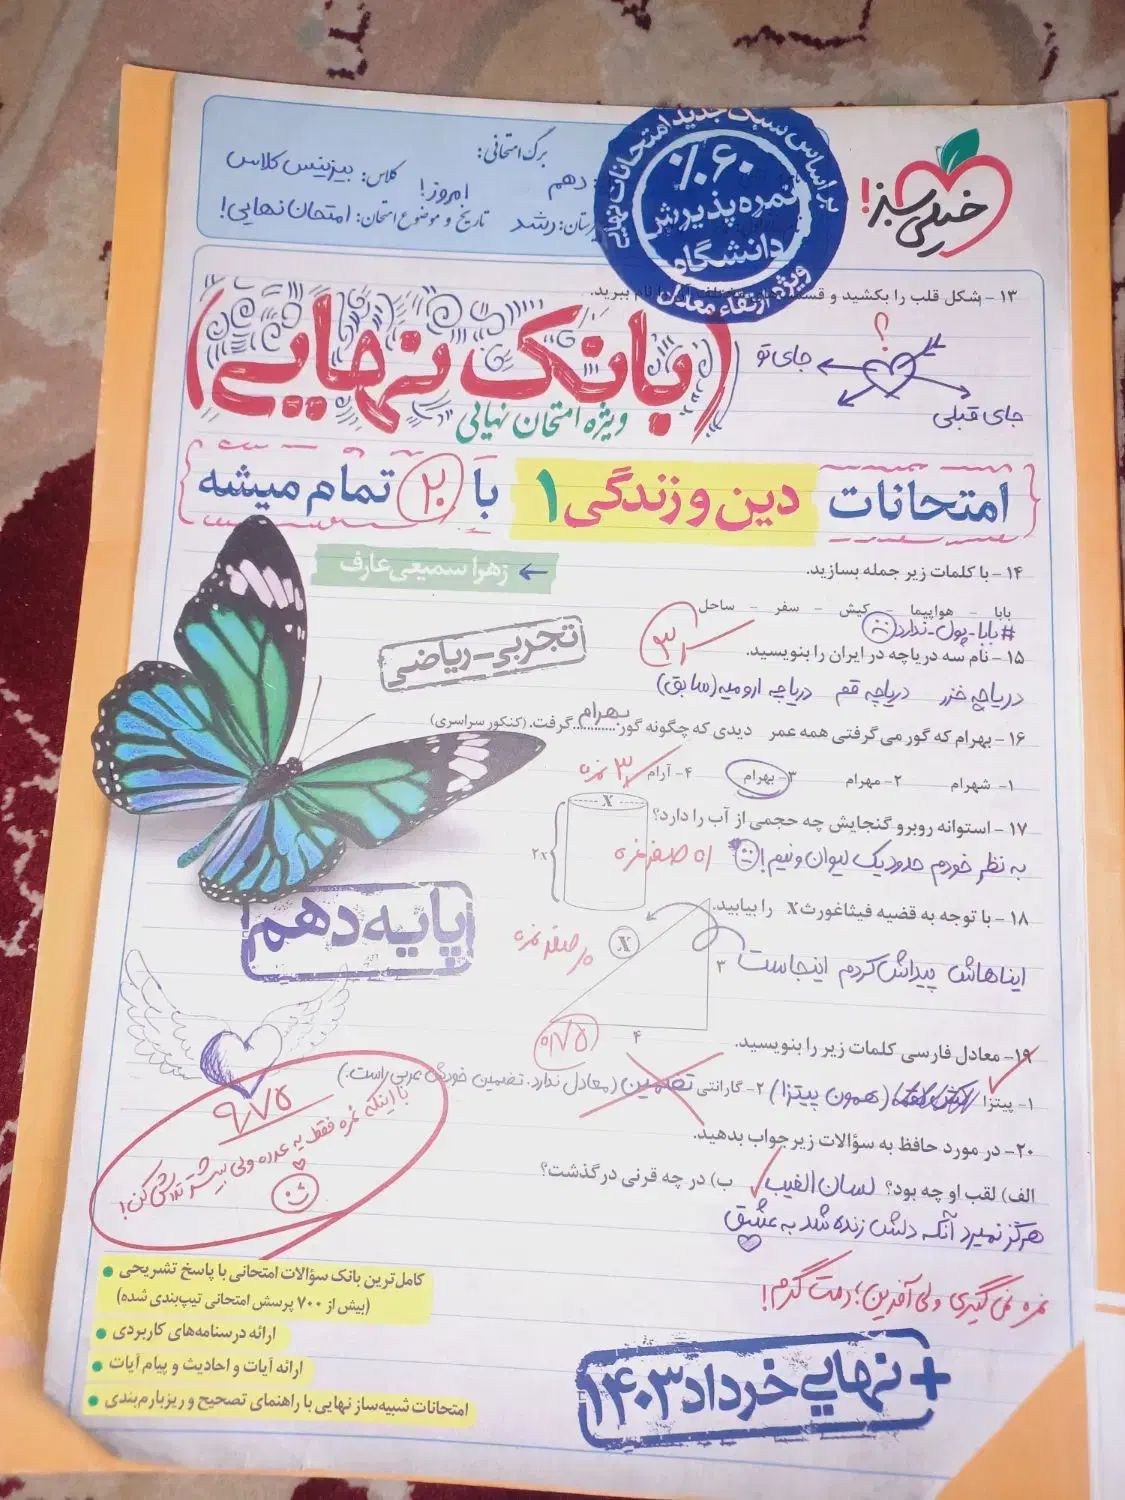 برگ امتحانی:
دهم
کلاس: بیزینس کلاس
امروز!
رستان: رشد
تاریخ و موضوع امتحان: امتحان نهایی!
بر اساس سبک جدید امتحانات نهایی
٪۶۰
نمره پذیرش
دانشگاه
ویژه ارتقاء معدل
خیلی سبز!
۱۳- شکل قلب را بکشید و قسمت‌های مختلف آن را نام ببرید.
؟
جای تو
جای قبلی
(بانک نهایی)
ویژه امتحان نهایی
امتحانات دین و زندگی ۱ با ۲۰ تمام میشه
زهرا سمیعی عارف
تجربی-ریاضی
۱۴- با کلمات زیر جمله بسازید.
بابا - هواپیما - کیش - سفر - ساحل
#بابا-پول-ندارد
۱۵- نام سه دریاچه در ایران را بنویسید.
دریاچه خزر دریاچه قم دریاچه ارومیه (سابق)
۱۶- بهرام که گور می‌گرفتی همه عمر دیدی که چگونه گور بهرام گرفت. (کنکور سراسری)
۱- شهرام ۲- مهرام ۳- بهرام ۴- آرام
۱۷- استوانه روبرو گنجایش چه حجمی از آب را دارد؟
x
۲x
به نظر خودم حدود یک لیوان و نیم!
۱۸- با توجه به قضیه فیثاغورث X را بیابید.
X
۳
۴
ایناهاش پیداش کردم اینجاست
پایه دهم
۰/۷۵
۱۹- معادل فارسی کلمات زیر را بنویسید.
۱- پیتزا (همون پیتزا) ۲- گارانتی تضمین (معادل ندارد. تضمین خودش عربی است.)
۲۰- در مورد حافظ به سؤالات زیر جواب بدهید.
الف) لقب او چه بود؟ لسان الغیب ب) در چه قرنی درگذشت؟
هرگز نمیرد آنکه دلش زنده شد به عشق
نمره نمی‌گیری ولی آفرین؛ دمت گرم!
۹/۷۵
با اینکه نمره فقط یه عدده ولی بیشتر تلاش کن!
کامل‌ترین بانک سؤالات امتحانی با پاسخ تشریحی
(بیش از ۷۰۰ پرسش امتحانی تیپ‌بندی شده)
ارائه درسنامه‌های کاربردی
ارائه آیات و احادیث و پیام آیات
امتحانات شبیه‌ساز نهایی با راهنمای تصحیح و ریزبارم‌بندی
+ نهایی خرداد ۱۴۰۳